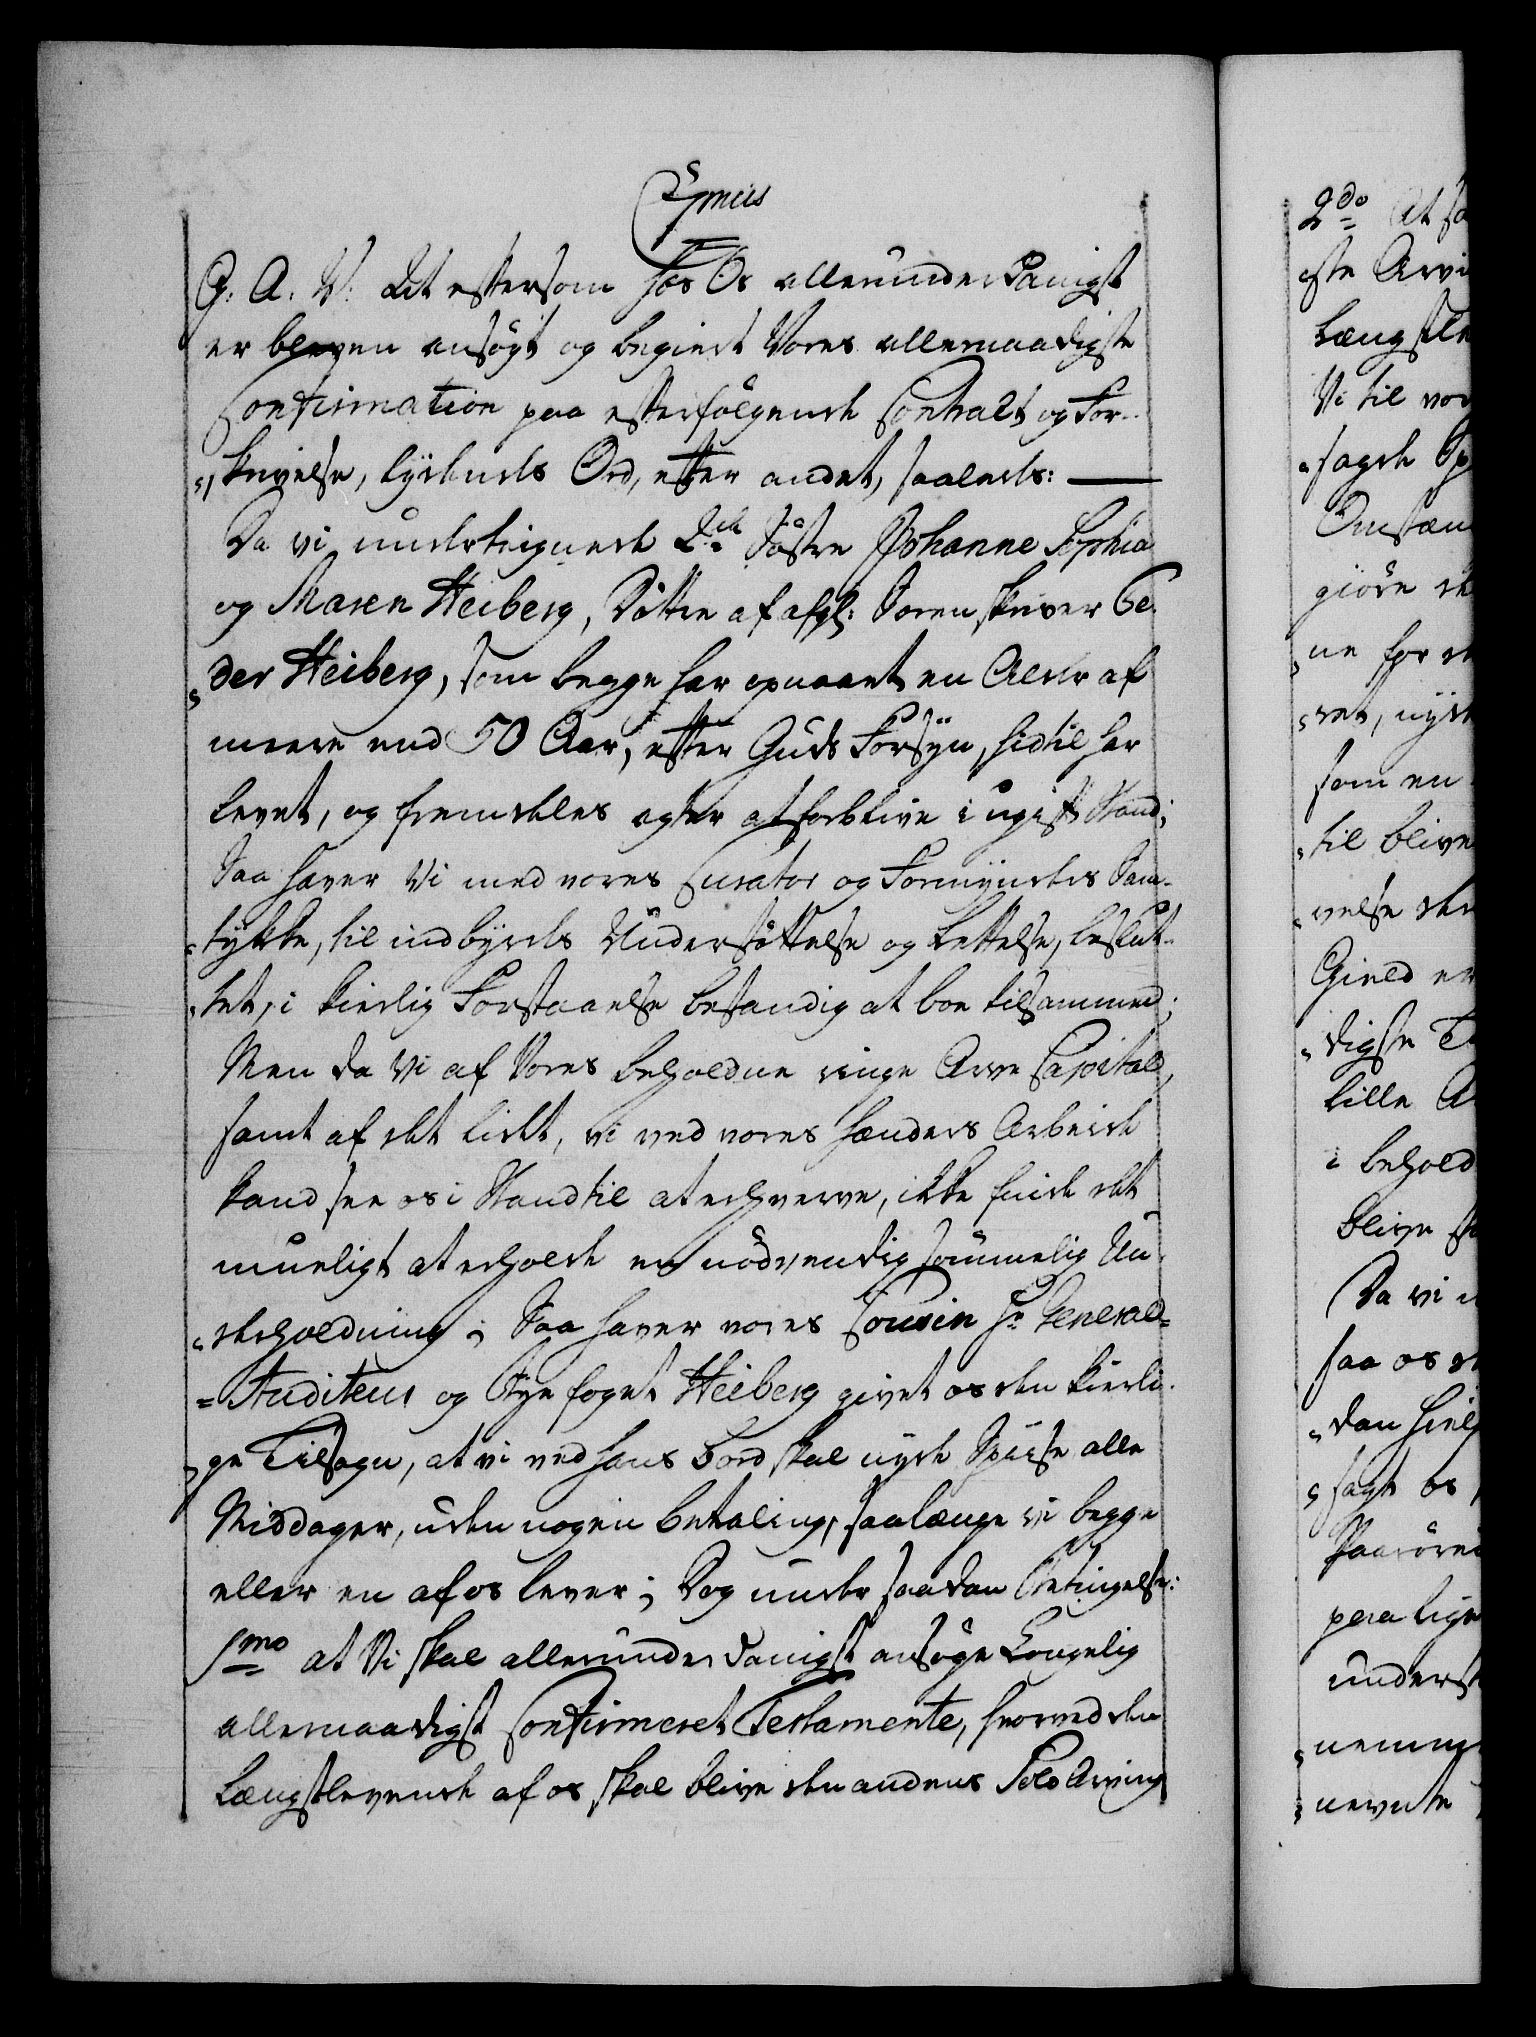 G: A. V: Det eftersom hos Os allerunderdanigst
er bleven ansögt og begiert Vores allernaadigste
Confirmation paa efterfölgende Contract og For-
skrivelse, lydende Ord, efter andet, saaledes:
Da vi underteignede 2de Söstre Johanne Sophia
og Maren Heiberg, Döttre af afgl: Sorenskriver Pe-
der Heiberg, som begge har opnaaet en Alder af
meere end 50 Aar, efter Guds Forsÿn, hidtil har
levet, og fremdeles agter at forblive i ugift Stand;
Saa haver Vi med vores Curator og Formynders Sam-
tykke, til indbyrdes Understöttelse og Lettelse, beslut-
tet, i kierlig Forstaaelse bestandig at boe tilsammen;
Men da Vi af Vores beholdne ringe Arve Capital,
samt af det lidet, vi ved vores Hænders Arbeide
kand see os i Stand til at erhverve, ikke finde det
mueligt at erholde en nödvendig sömmelig Un-
derholdning; Saa haver vores Cousin Hr General-
Auditeur og Byefoget Heiberg givet os den kierli-
ge Tilsagn, at vi ved hans Bord skal nyde Spiise alle
Middager, uden nogen betaling, saalænge vi begge
eller en af os lever; Dog under saadan Betingelse:
1mo at Vi skal allerunderdanigst ansöge Kongelig
allernaadigst Confirmeret Testamente, hvorved den
Længstlevende af os skal blive den andens Solo Arving
2do At sa
ste Arvi
Længstle
Vi til vor
sagde Sp
Omstæn
giöre de
ne for de
ret, nyde
som en
til blive
velse der
Gield er
digste T
lille A
i behold
blive
Da vi
saa os
dan hielp
sagt os
paa lige
underst
nevnte